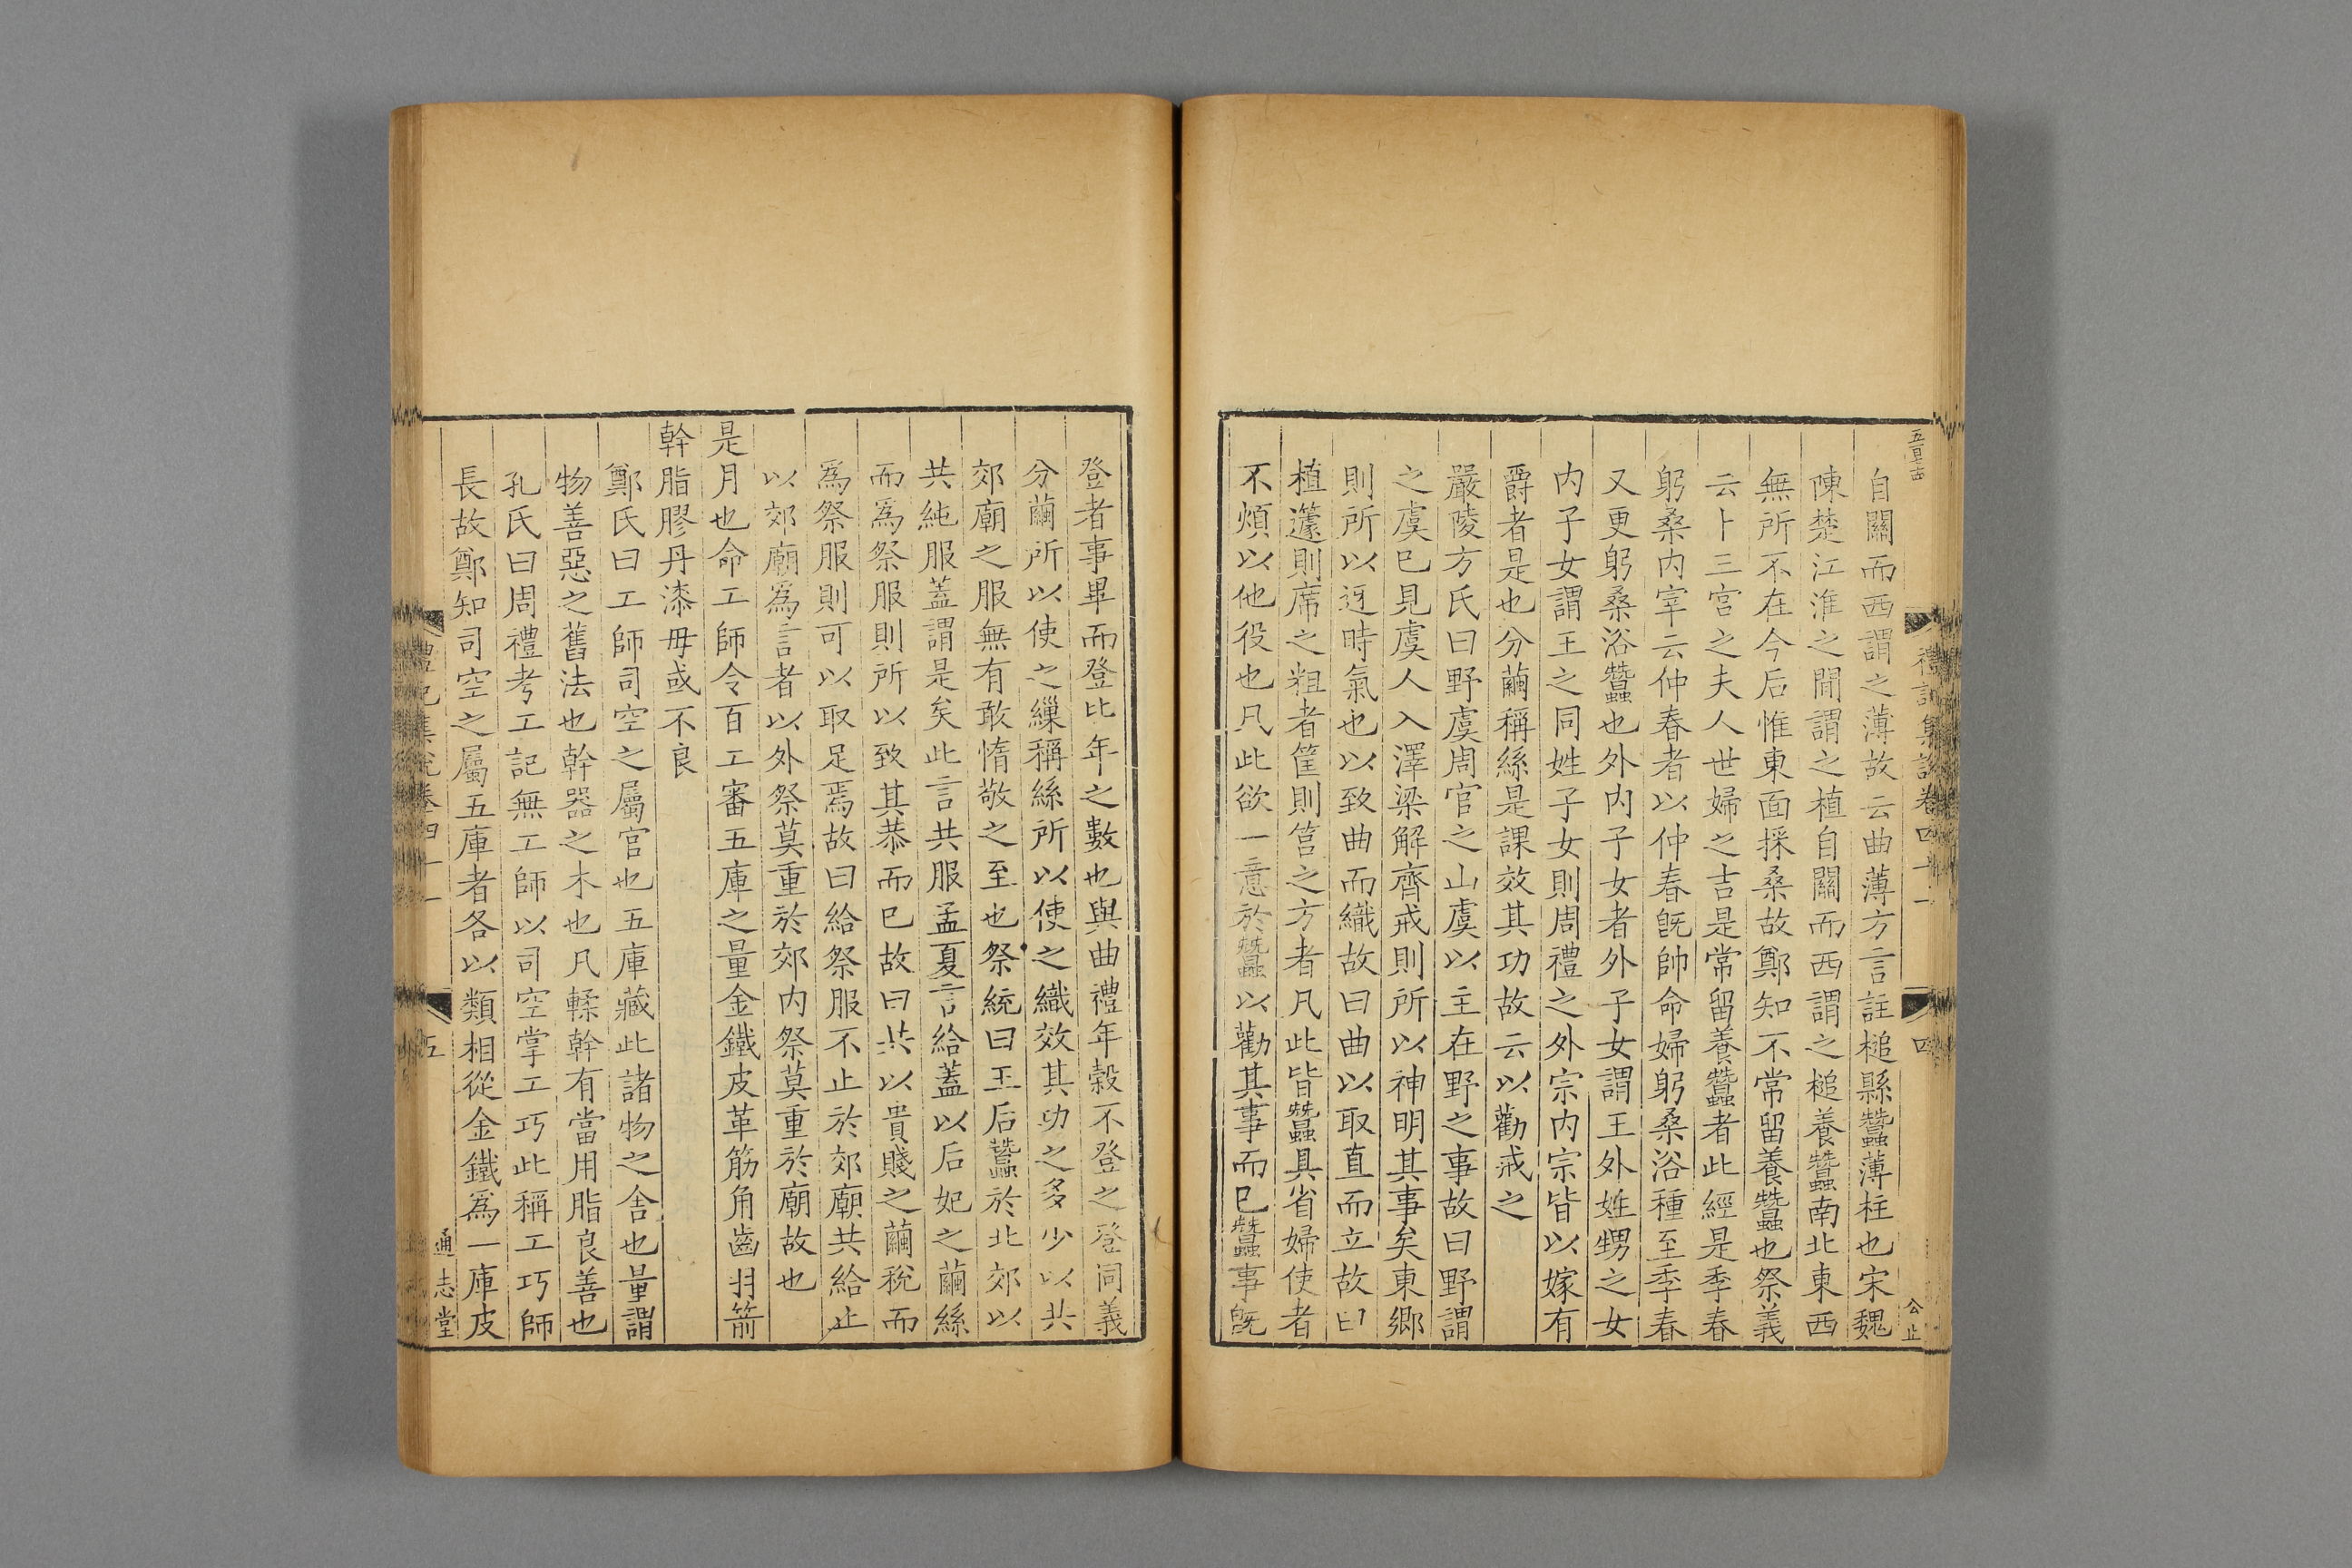 自關而西謂之薄故云曲薄方言註槌縣蠶薄柱也宋魏
陳楚江淮之間謂之植自關而西謂之槌養蠶南北東西
無所不在今后惟東面採桑故鄭知不常留養蠶也祭義
云卜三宮之夫人世婦之吉是常留養蠶者此經是季春
躬桑内宰云仲春者以仲春旣帥命婦躬桑浴種至季春
又更躬桑浴蠶也外内子女者外子女謂王外姓甥之女
内子女謂王之同姓子女則周禮之外宗内宗皆以嫁有
爵者是也分繭稱絲是課效其功故云以勸戒之
嚴陵方氏曰野虞周官之山虞以主在野之事故曰野謂
之虞巳見虞人入澤梁解齊戒則所以神明其事矣東鄉
則所以迓時氣也以致曲而織故曰曲以取直而立故曰
植籧則席之粗者筐則筥之方者凡此皆蠶具省婦使者
不煩以他役也凡此欲一意於蠶以勸其事而巳蠶事旣
禮記集說卷四十一
四
登者事畢而登比年之數也與曲禮年穀不登之登同義
分繭所以使之繅稱絲所以使之織效其功之多少以共
郊廟之服無有敢惰敬之至也祭統曰王后蠶於北郊以
共純服蓋謂是矣此言共服孟夏言給蓋以后妃之繭絲
而爲祭服則所以致其恭而已故曰共以貴賤之繭稅而
爲祭服則可以取足焉故曰給祭服不止於郊廟共給止
以郊廟爲言者以外祭莫重於郊内祭莫重於廟故也
是月也命工師令百工審五庫之量金鐵皮革筋角齒羽箭
幹脂膠丹漆毋或不良
鄭氏曰工師司空之屬官也五庫藏此諸物之舍也量謂
物善惡之舊法也幹器之木也凡輮幹有當用脂良善也
孔氏曰周禮考工記無工師以司空掌工巧此稱工巧師
長故鄭知司空之屬五庫者各以類相從金鐵爲一庫皮
禮記集說卷四十一
五
通志堂